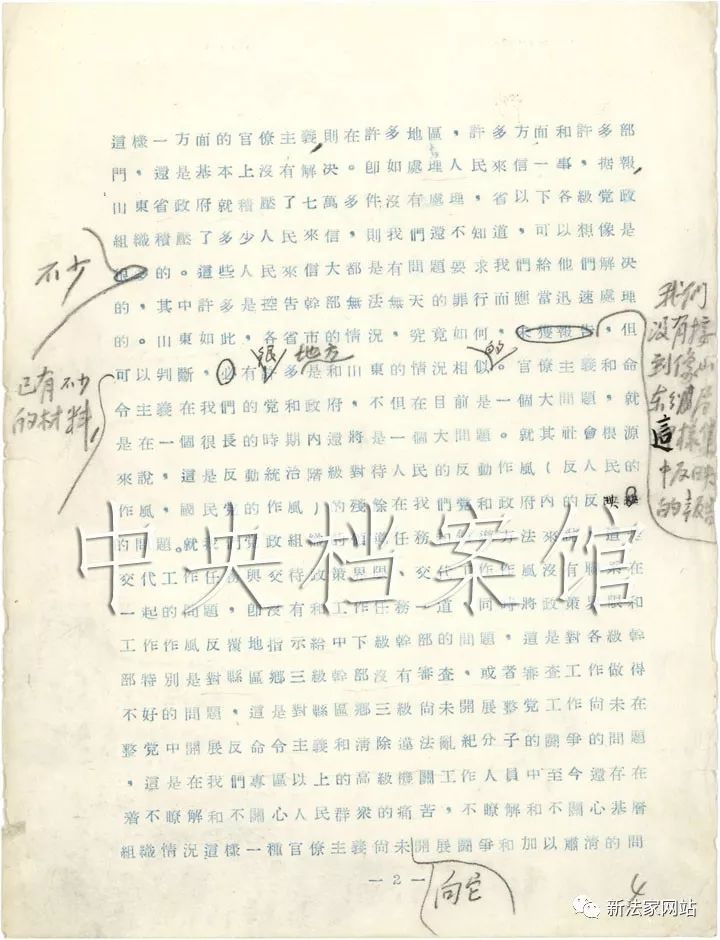 這樣一方面的官僚主義,則在許多地區,許多方面和許多部
門,還是基本上沒有解決。卽如處理人民來信一事,据報,
山東省政府就積壓了七萬多件沒有處理,省以下各級党政
組織積壓了多少人民來信,則我們還不知道,可以想像是
多的。這些人民來信大都是有問題要求我們給他們解決
的,其中許多是控告幹部無法無天的罪行而應當迅速處理
的。山東如此,各省市的情況,究竟如何,未獲報告,但
可以判斷,必有許多是和山東的情況相似。官僚主義和命
令主義在我們的党和政府,不但在目前是一個大問題,就
是在一個很長的時期內還將是一個大問題。就其社會根源
來說,這是反動統治階級對待人民的反動作風(反人民的
作風,國民党的作風)的殘餘在我們党和政府內的反映
的問題。就我們党政組織的領導任務和領導方法來說,這是
交代工作任務與交待政策界限、交代工作作風沒有聯系在
一起的問題,卽沒有和工作任務一道,同時將政策界限和
工作作風反覆地指示給中下級幹部的問題,這是對各級幹
部特別是對縣區鄉三級幹部沒有審查,或者審查工作做得
不好的問題,這是對縣區鄉三級尙未開展整党工作尙未在
整党中開展反命令主義和淸除違法亂紀分子的鬪爭的問題
,這是在我們專區以上的高級機關工作人員中至今還存在
着不瞭解和不關心人民群衆的痛苦,不瞭解和不關心基層
組織情況這樣一種官僚主義尙未開展鬪爭和加以肅淸的問
— 2 —
不少
已有不少
的材料,
很
地方
的
我們
沒有接
到像山
東
這樣集
中反映
的報告
向它
4
中央档案馆
新法家网站